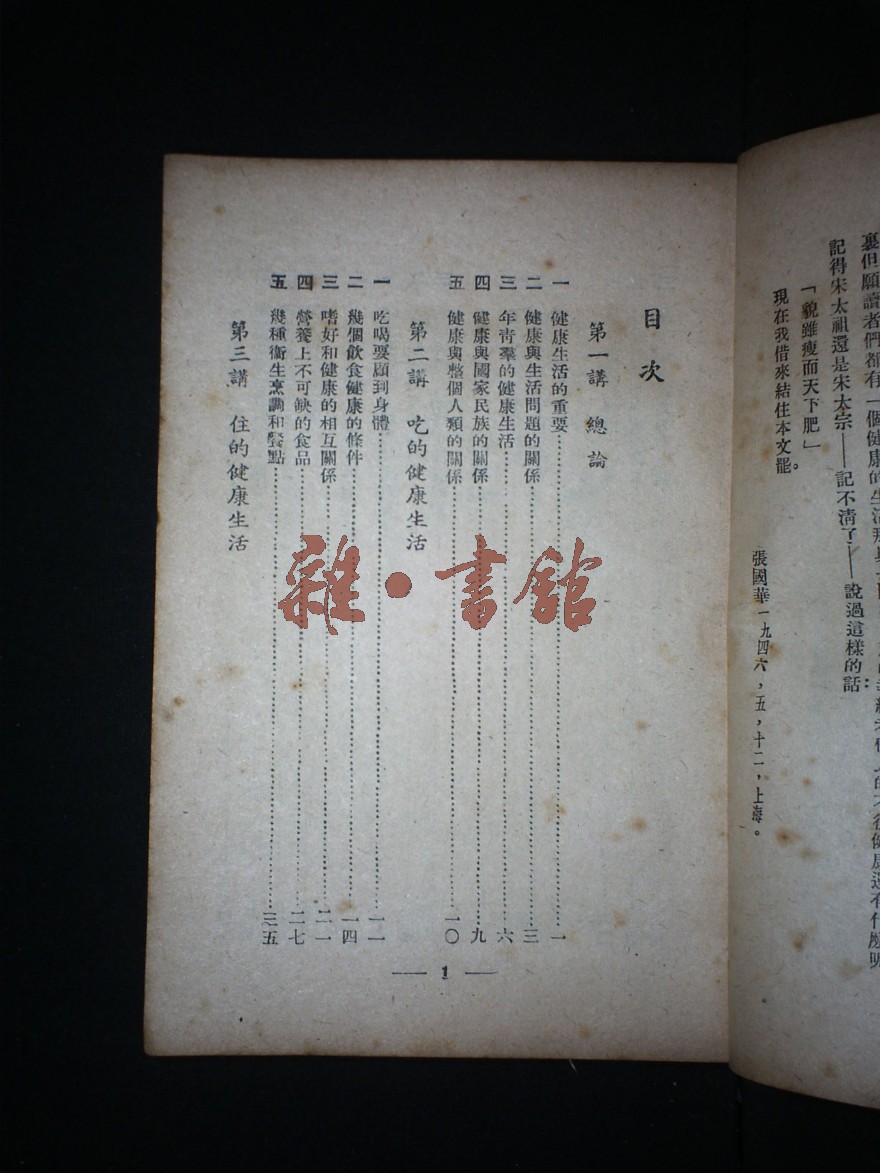 裏但願讀者們都有一個健康的生活
記得宋太祖還是宋太宗——記不清了——說過這樣的話：
「貌雖瘦而天下肥」。
現在我借來結住本文罷
張國華一九四六，五，十二，上海。
目次
第一講 總論
一 健康生活的重要……一
二 健康與生活問題的關係……三
三 年青羣的健康生活……六
四 健康與國家民族的關係……九
五 健康與整個人類的關係……一〇
第二講 吃的健康生活
一 吃喝要顧到身體……一一
二 幾個飲食健康的條件……一四
三 嗜好和健康的相互關係……二一
四 營養上不可缺的食品……二七
五 幾種衛生烹調和餐點……三五
第三講 住的健康生活
— 1 —
雜·書館